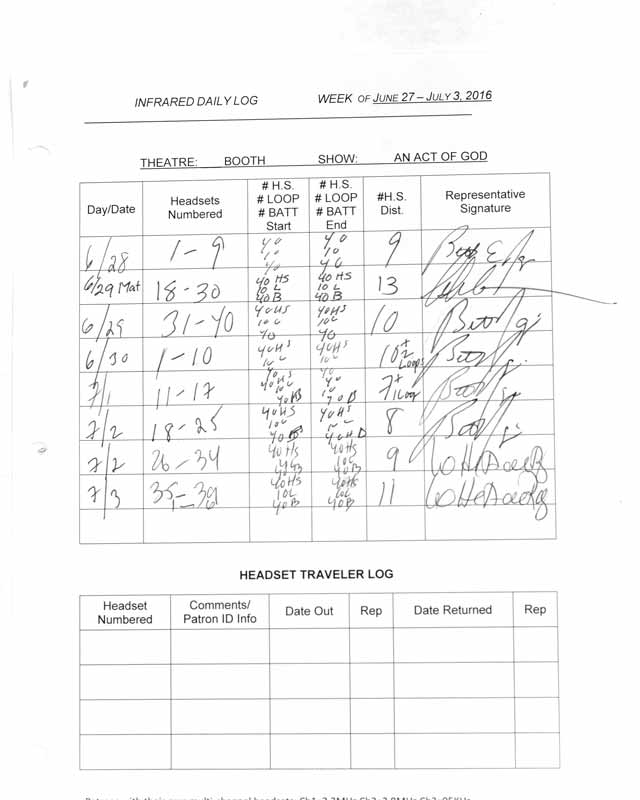 INFRARED DAILY LOG WEEK OF JUNE 27 – JULY 3, 2016
THEATRE: BOOTH SHOW: AN ACT OF GOD
Day/Date
Headsets
Numbered
# H.S.
# LOOP
# BATT
Start
# H.S.
# LOOP
# BATT
End
#H.S.
Dist.
Representative
Signature
6/28 1-9 40 40 9
10 10
40 40
6/29 Mat 18-30 40 HS 40 HS 13
10 L 10 L
40 B 40 B
6/29 31-40 40HS 40HS 10
10L 10L
40 40
6/30 1-10 40HS 40HS 10+2
10L 10L Loops
40 40
7/1 11-17 40HS 40 7+
10L 10 1Loop
40B 40B
7/2 18-25 40HS 40HS 8
10L
40B
7/2 26-34 40HS 40HS 9
10L
40B 40B
7/3 35-39 40HS 40HS 11
1-- 10L 10L
40B 40B
HEADSET TRAVELER LOG
Headset
Numbered
Comments/
Patron ID Info
Date Out
Rep
Date Returned
Rep